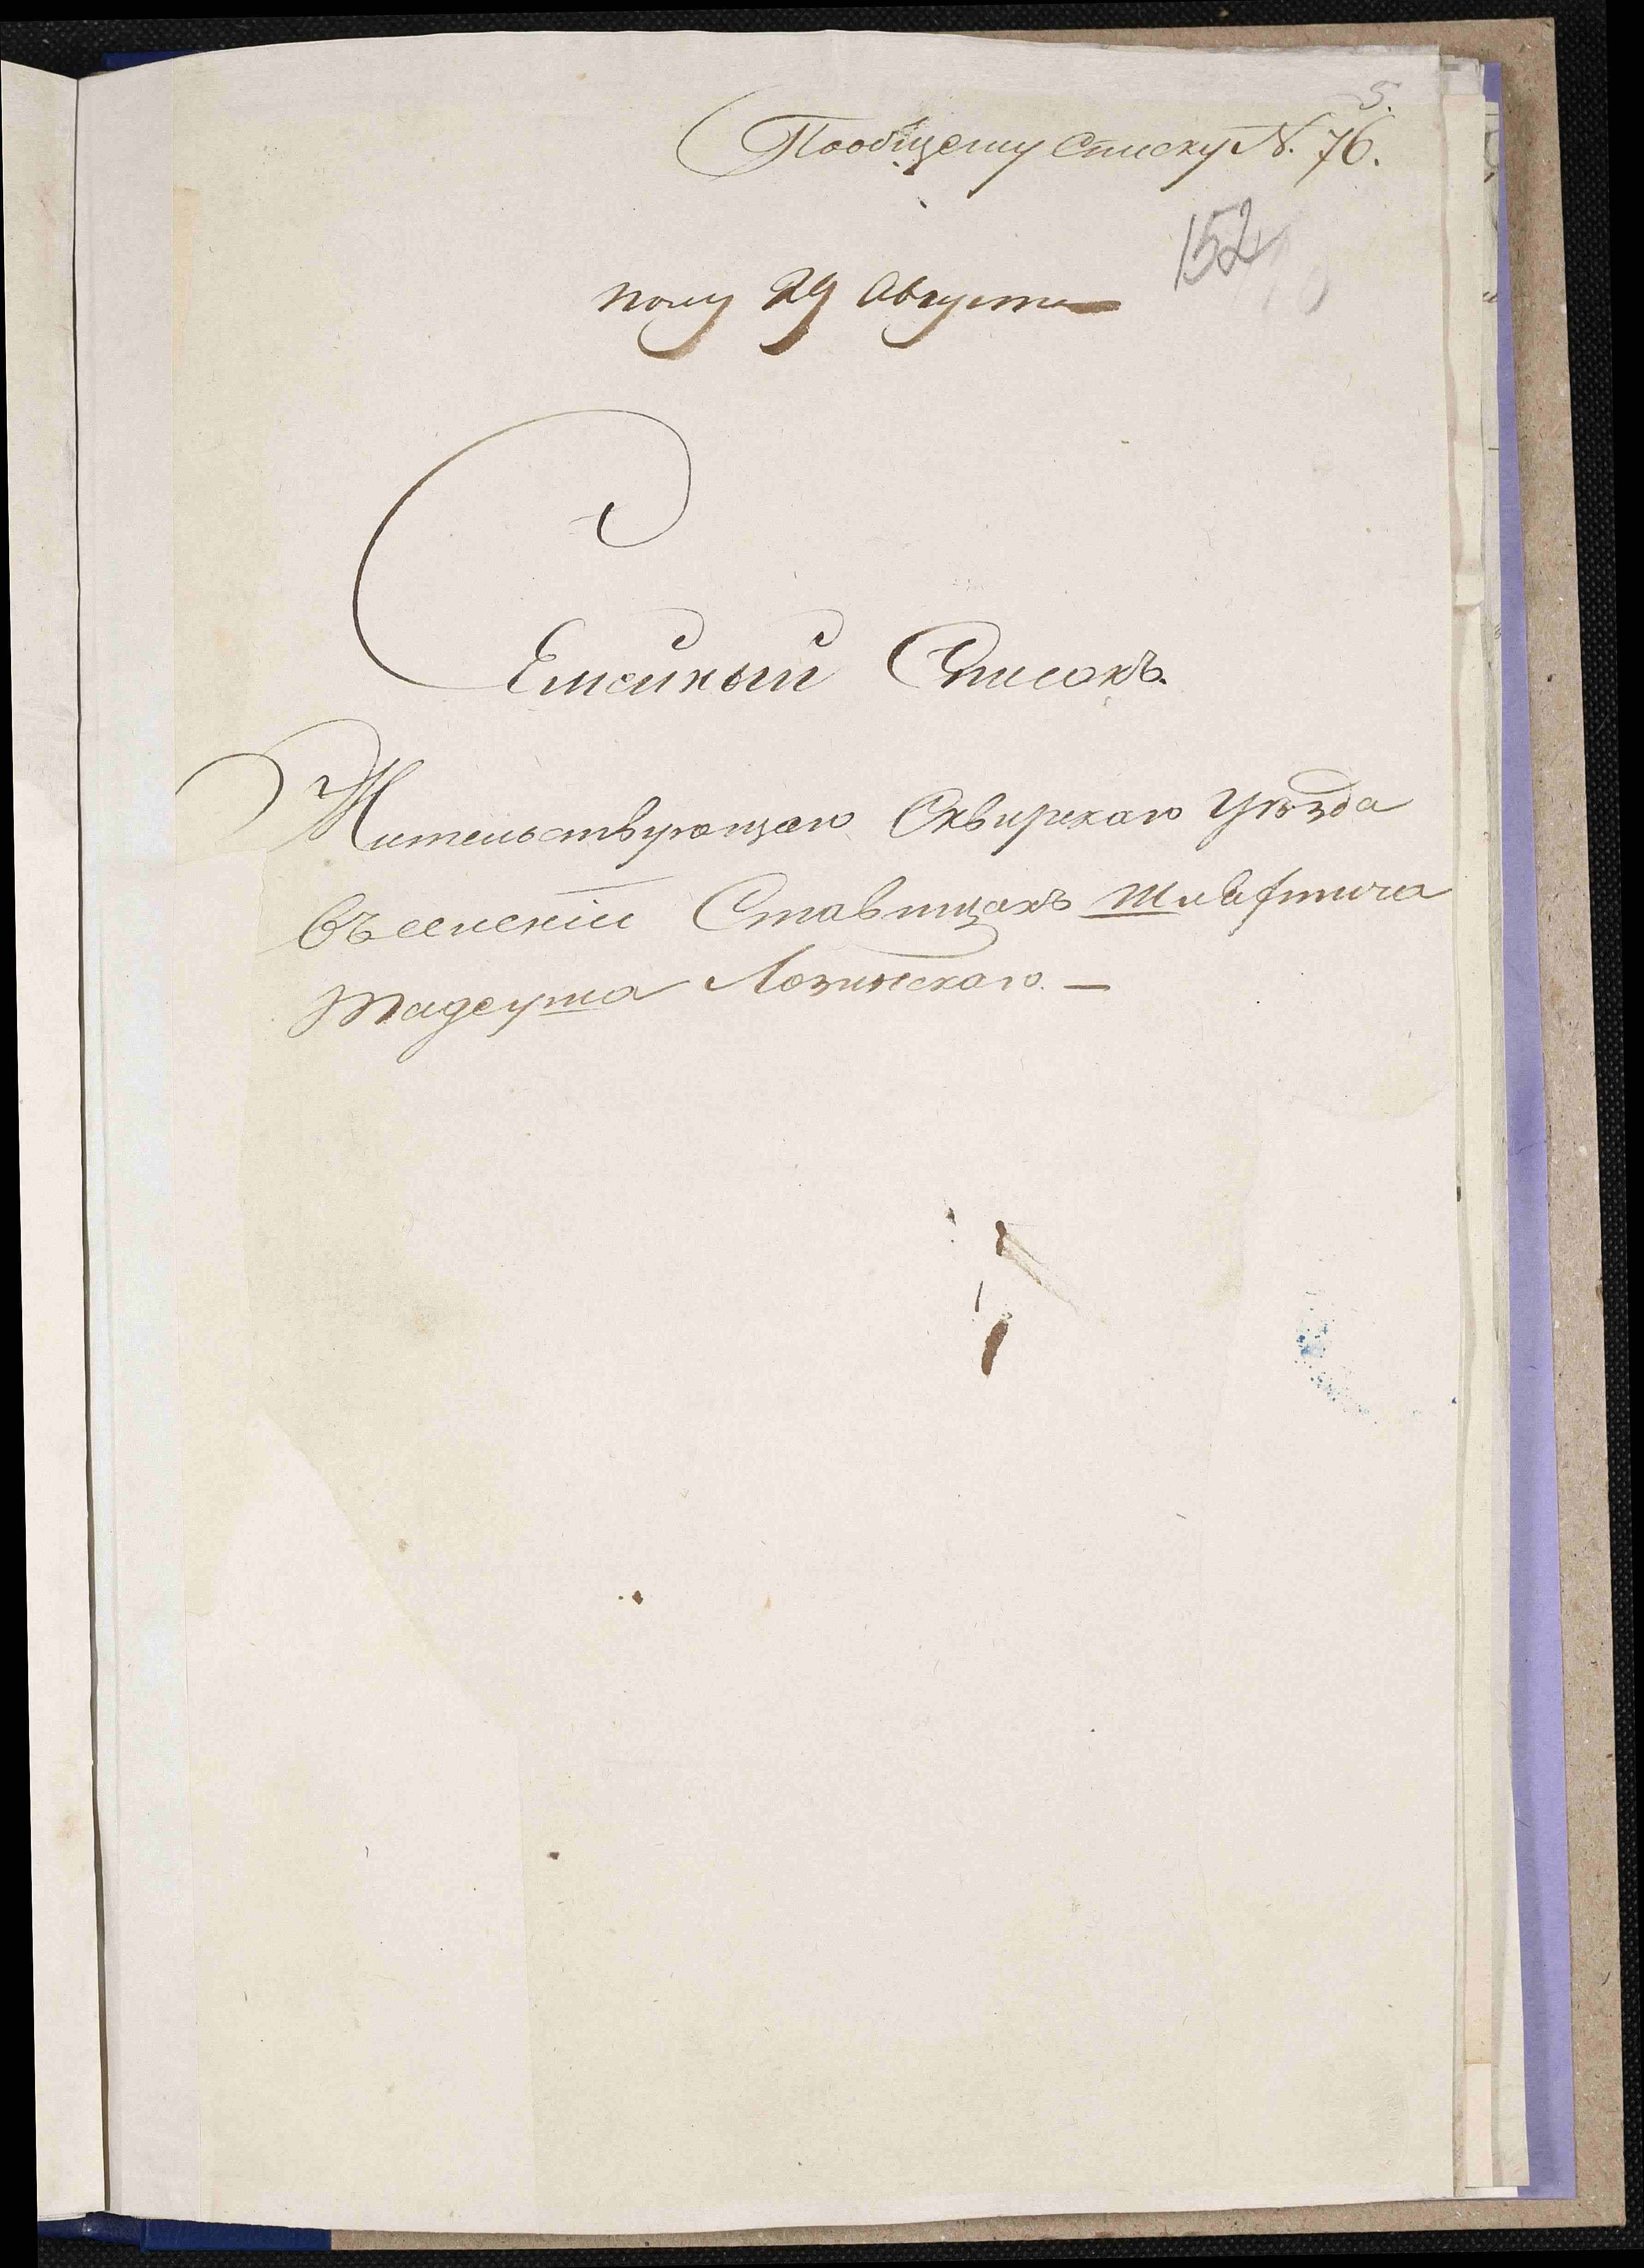 5.
Пообщему Списку N. 76.
152
полу 29 Августа
Семейный Списокъ.
Жительствующаго Сквирскаго Уѣзда
Въ селеніи Ставищахъ Шляхтича
Тадеуша Лозинскаго. —